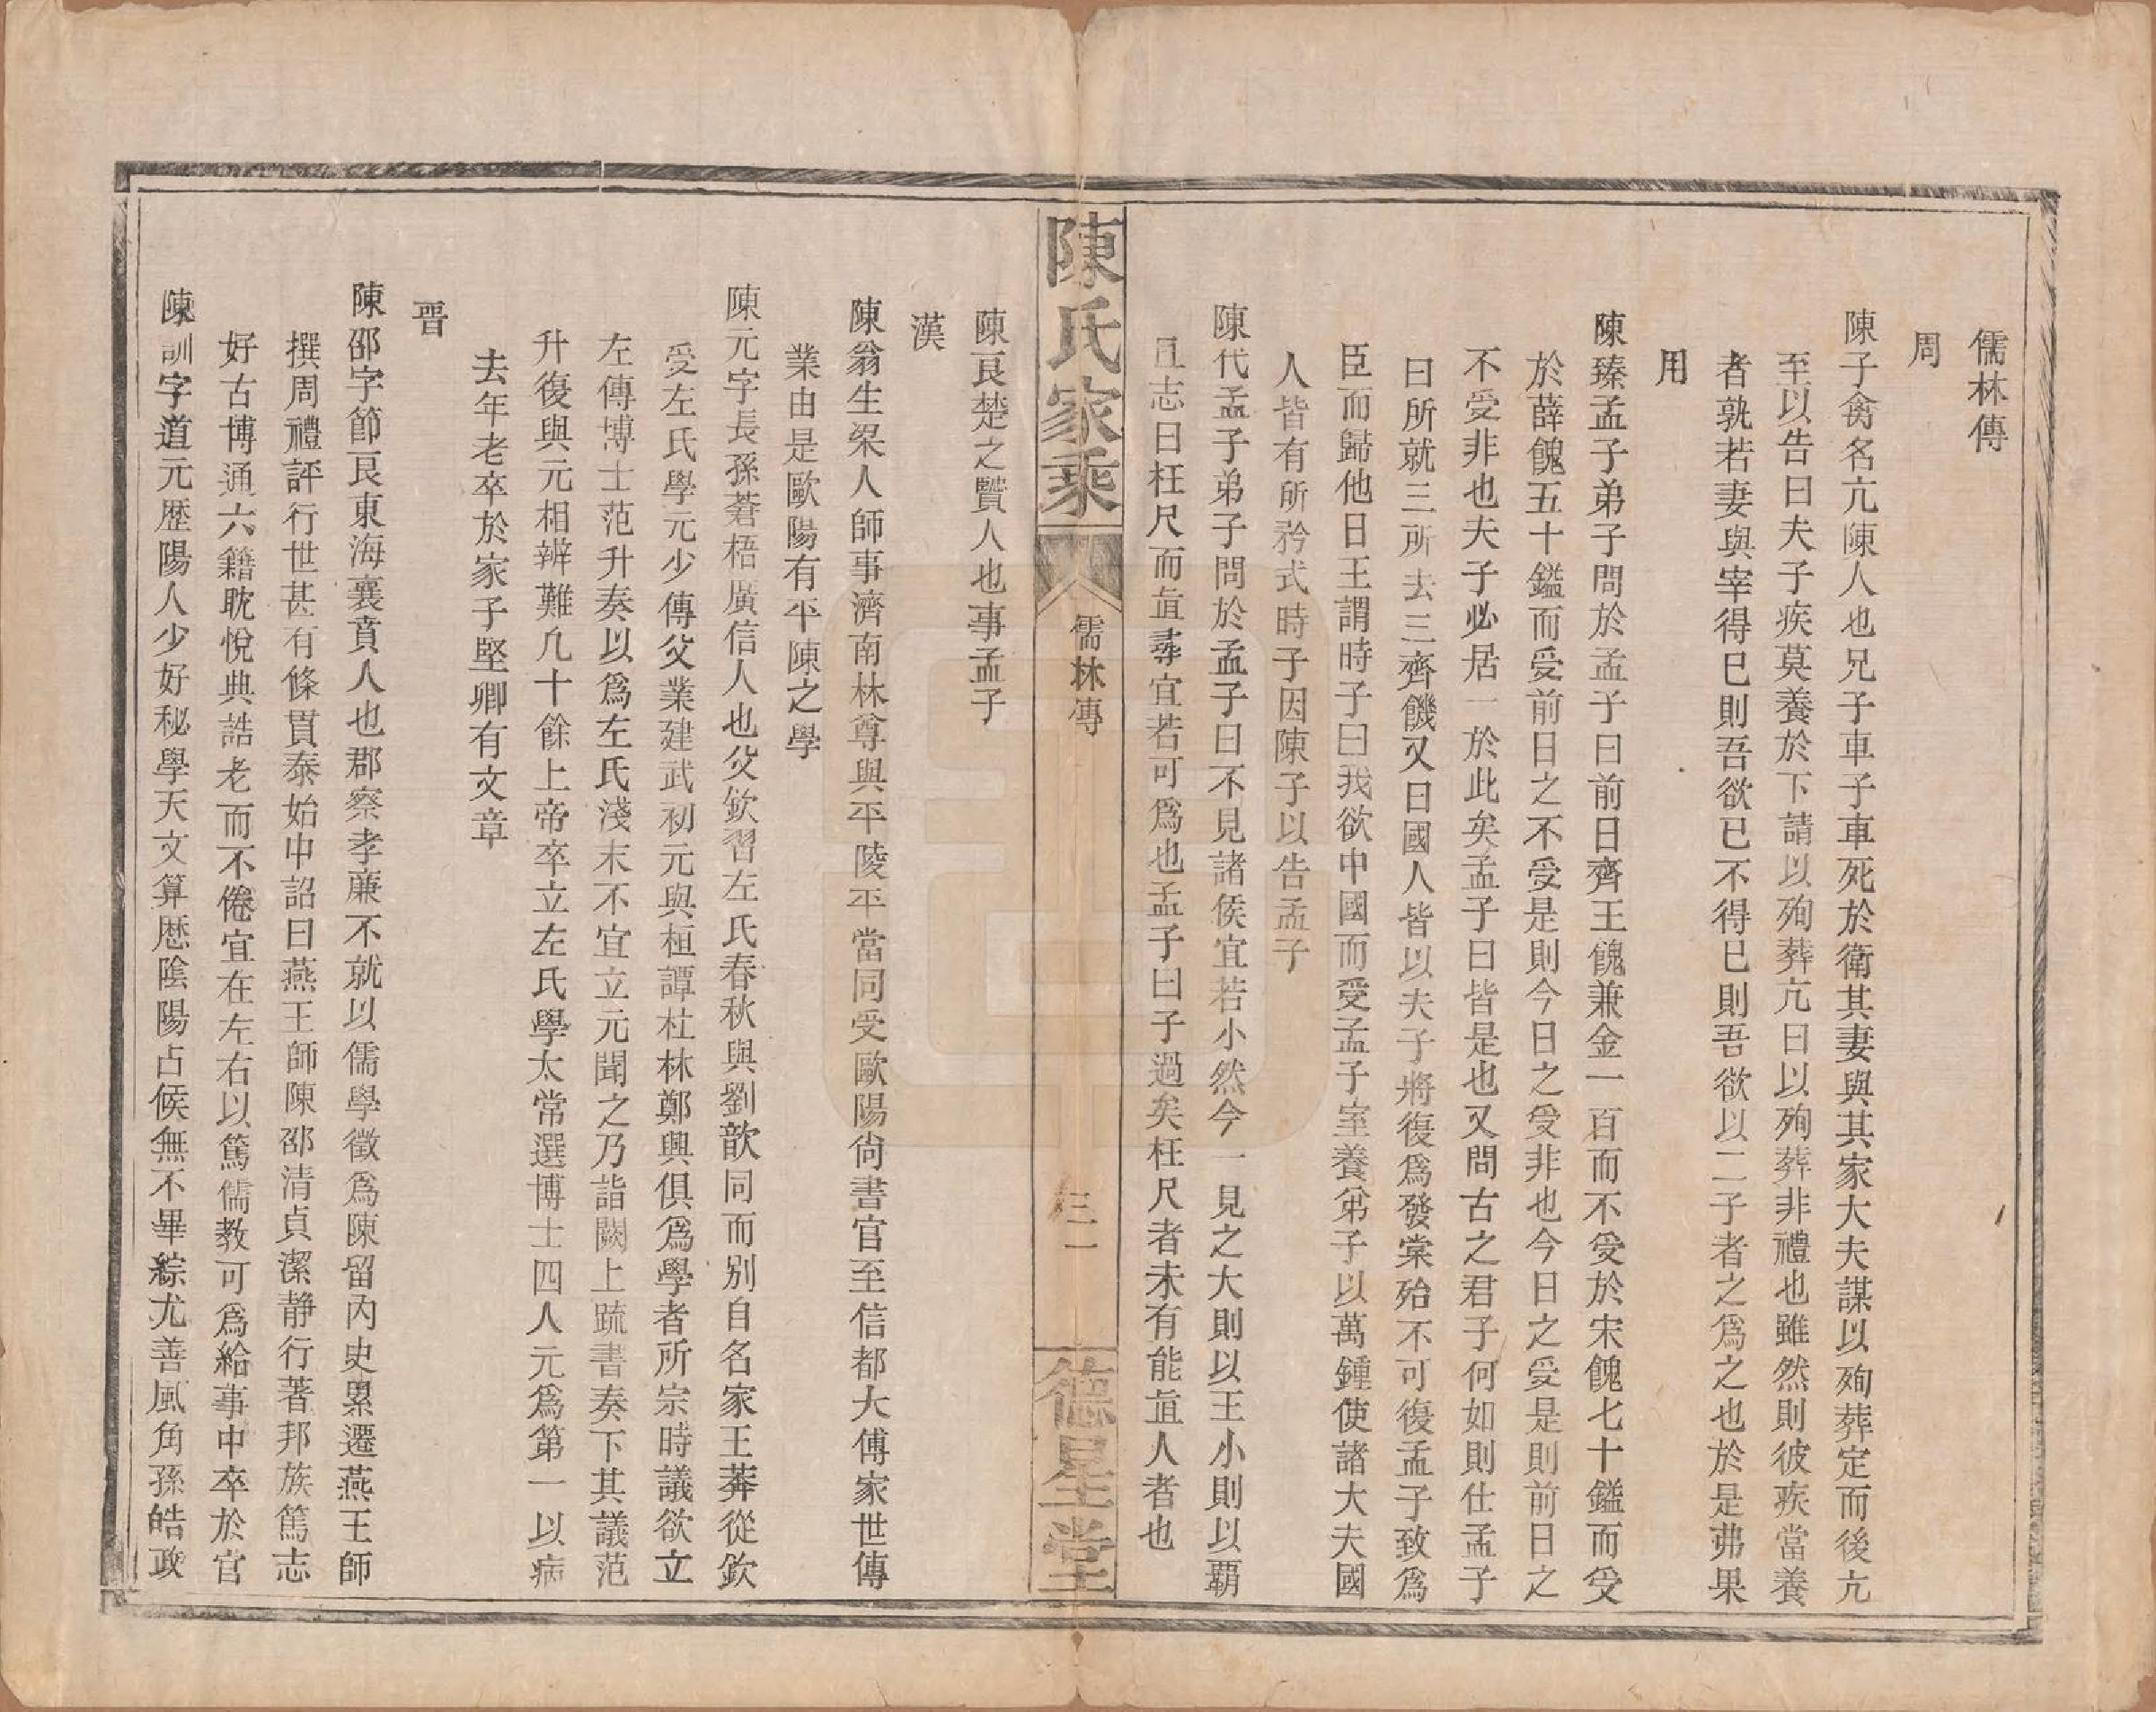 儒林傳
周
陳子禽名亢陳人也兄子車子車死於衛其妻與其家大夫謀以殉葬定而後亢
至以告曰夫子疾莫養於下請以殉葬亢曰以殉葬非禮也雖然則彼疾當養
者孰若妻與宰得已則吾欲已不得已則吾欲以二子者之爲之也於是弗果
用
陳臻孟子弟子問於孟子曰前日齊王餽兼金一百而不受於宋餽七十鎰而受
於薛餽五十鎰而受前日之不受是則今日之受非也今日之受是則前日之
不受非也夫子必居一於此矣孟子曰皆是也又問古之君子何如則仕孟子
曰所就三所去三齊饑又曰國人皆以夫子將復爲發棠殆不可復孟子致爲
臣而歸他日王謂時子曰我欲中國而受孟子室養弟子以萬鍾使諸大夫國
人皆有所矜式時子因陳子以告孟子
陳代孟子弟子問於孟子曰不見諸侯宜若小然今一見之大則以王小則以覇
且志曰枉尺而直尋宜若可爲也孟子曰子過矣枉尺者未有能直人者也
陳氏家乘
儒林傳
三一
德星堂
陳良楚之賢人也事孟子
漢
陳翁生梁人師事濟南林尊與平陵平當同受歐陽尙書官至信都大傅家世傳
業由是歐陽有平陳之學
陳元字長孫蒼梧廣信人也父欽習左氏春秋與劉歆同而别自名家王莽從欽
受左氏學元少傳父業建武初元與桓譚杜林鄭興俱爲學者所宗時議欲立
左傳博士范升奏以爲左氏淺末不宜立元聞之乃詣闕上疏書奏下其議范
升復與元相辨難凢十餘上帝卒立左氏學太常選博士四人元爲第一以病
去年老卒於家子堅卿有文章
晋
陳邵字節良東海襄賁人也郡察孝亷不就以儒學徵爲陳留內史累遷燕王師
撰周禮評行世甚有條貫泰始中詔曰燕王師陳邵清貞潔静行著邦族篤志
好古博通六籍耽悅典誥老而不倦宜在左右以篤儒教可爲給事中卒於官
陳訓字道元歴陽人少好秘學天文算厯陰陽占候無不畢綜尤善風角孫皓政